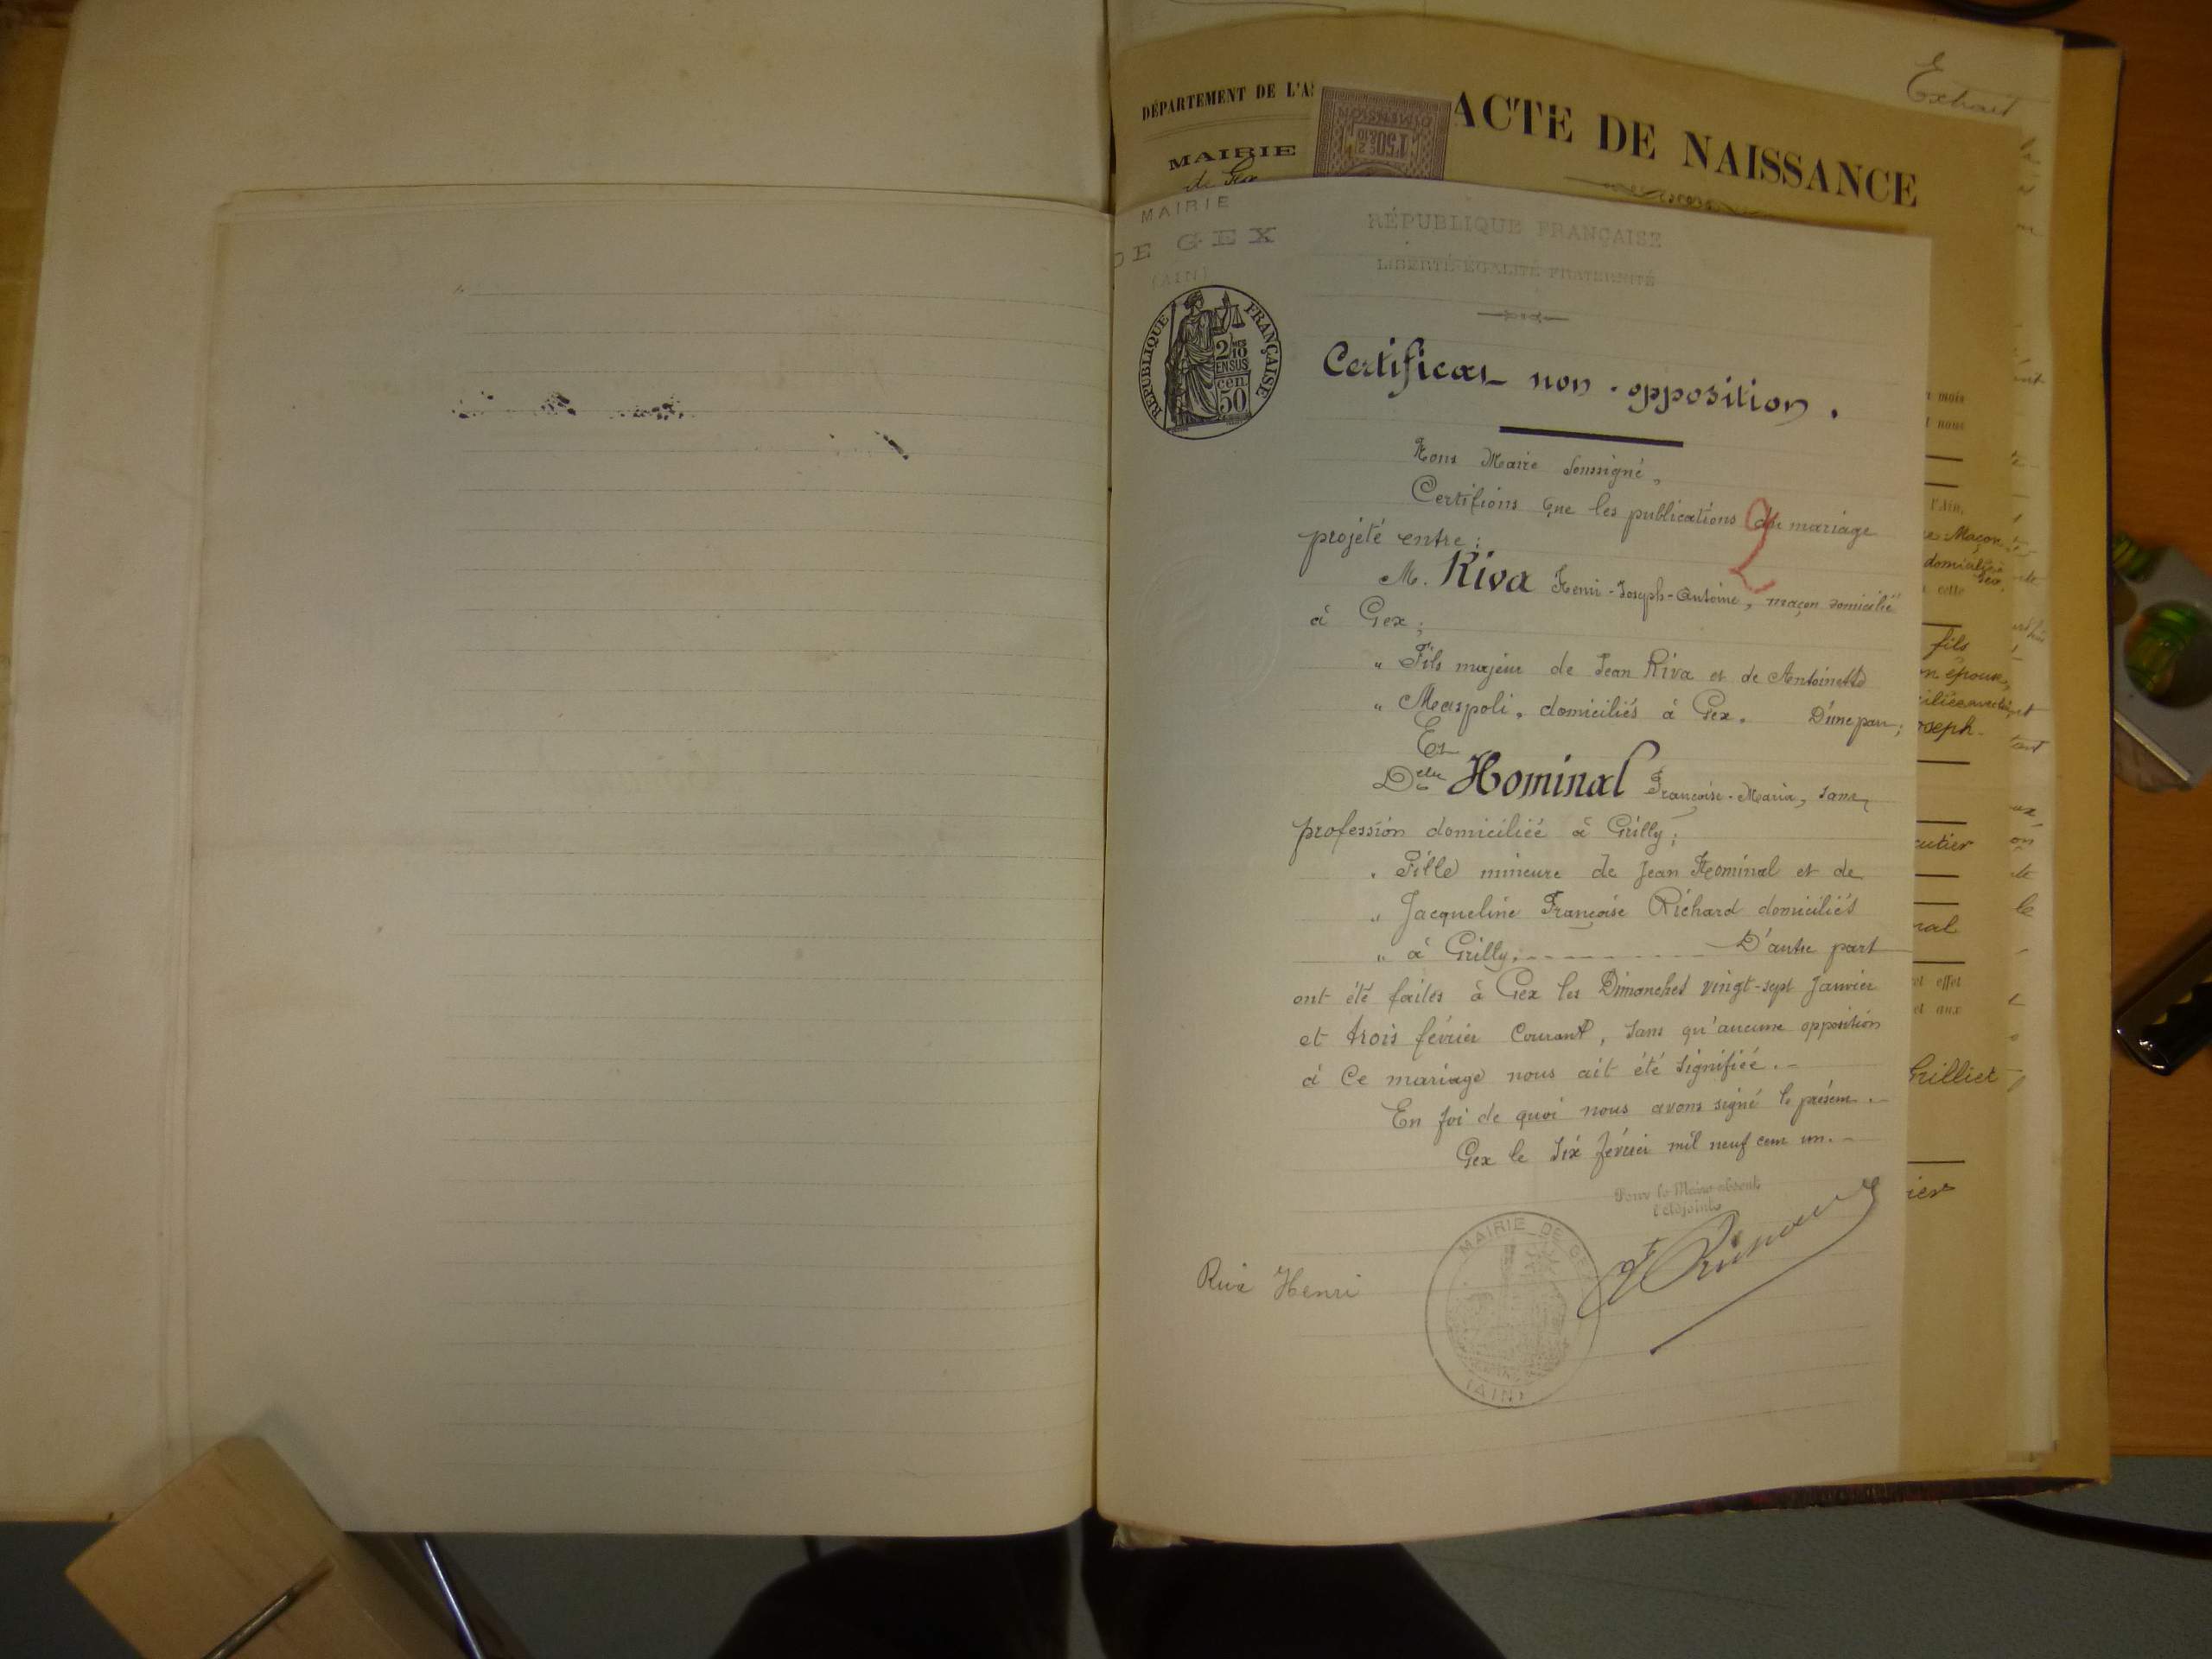 Extrait
DÉPARTEMENT DE L'A
MAIRIE
de Gex
ACTE DE NAISSANCE
MAIRIE
DE GEX
(AIN)
RÉPUBLIQUE FRANÇAISE
LIBERTÉ-ÉGALITÉ-FRATERNITÉ
RÉPUBLIQUE FRANÇAISE
2/10
EN SUS
cen.
50
Certificat non-opposition.
Nous Maire soussigné,
Certifions que les publications du mariage
projeté entre:
M. Riva Henri-Joseph-Antoine, maçon domicilié
à Gex;
" Fils majeur de Jean Riva et de Antoinette
" Maspoli, domiciliés à Gex. D'une part;
Et
Delle Hominal Françoise-Maria, sans
profession domiciliée à Grilly;
" Fille mineure de Jean Hominal et de
" Jacqueline Françoise Richard domiciliés
" à Grilly. D'autre part
ont été faites à Gex les Dimanches vingt-sept Janvier
et trois février courant, sans qu'aucune opposition
à ce mariage nous ait été signifiée.-
En foi de quoi nous avons signé le présent.-
Gex le six février mil neuf cent un.-
Pour le Maire absent
l'adjoint
MAIRIE DE GEX
(AIN)
Riva Henri
mois
nous
l'Ain,
Maçon
domicilié à
Gex
cette
fils
épouse,
oseph-
cutier
nal
et effet
et aux
Grillier
ier